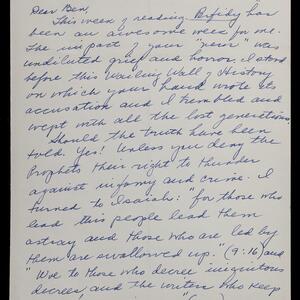 Dear Ben,
This week of reading Perfidy has
been an awesome week for me.
The impact of your "news" was
undiluted grief and horror. I stood
before this Wailing Wall of History
on which your hand wrote its
accusation and I trembled and
wept with all the lost generations.
Should the truth have been
told. Yes! Unless you deny the
Prophets their right to thunder
against infamy and crime. I
turned to Isaiah: "for those who
lead this people lead them
astray and those who are led by
them are swallowed up." (9:16) and
"Woe to those who decree iniquitous
decrees, and the writers who keep